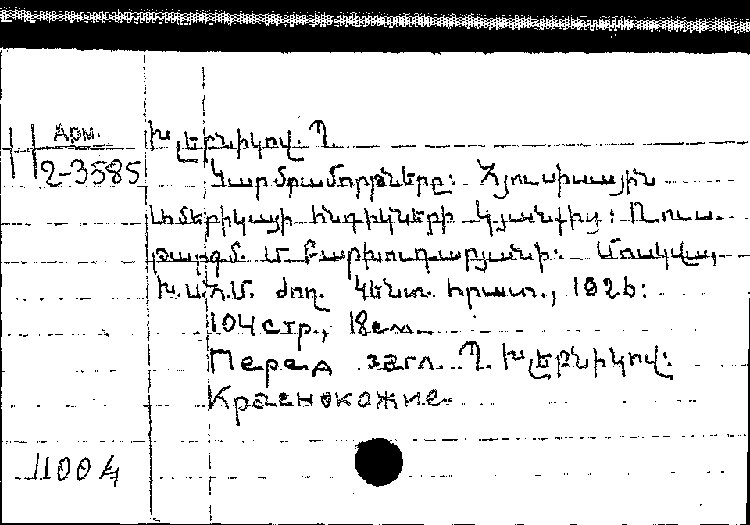 Арм. Խլեբնիկով. Պ.
2-3585 Կարմրամորթները: Հյուսիսային
Ամերիկայի հնդիկների կյանքից: Ռուս.
թարգմ. Մ Բարխուդարյանի: Մոսկվա,
Խ.Ս.Հ.Մ. ժող. Կենտ. հրատ., 1926:
104 стр., 18 см.
Перед загл. Պ. Խլեբնիկով:
Краснокожие.
11004